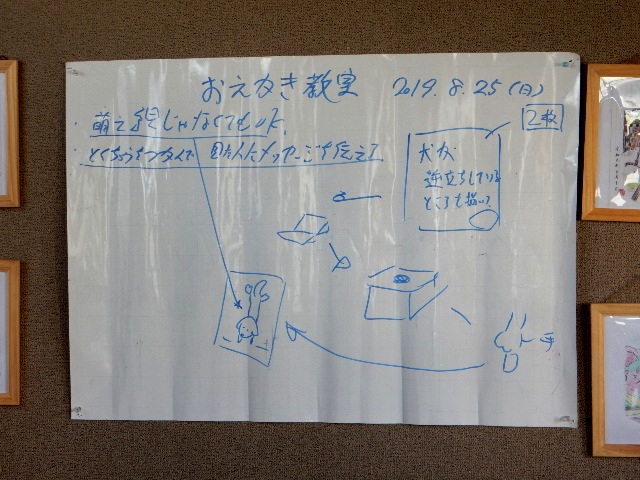 おえかき教室 2019.8.25(日)
・萌え絵じゃなくてもOK
・とくちょうをつかんで 見た人にメッセージを伝える
2枚
犬が
逆立ちしている
ところを描いて
手